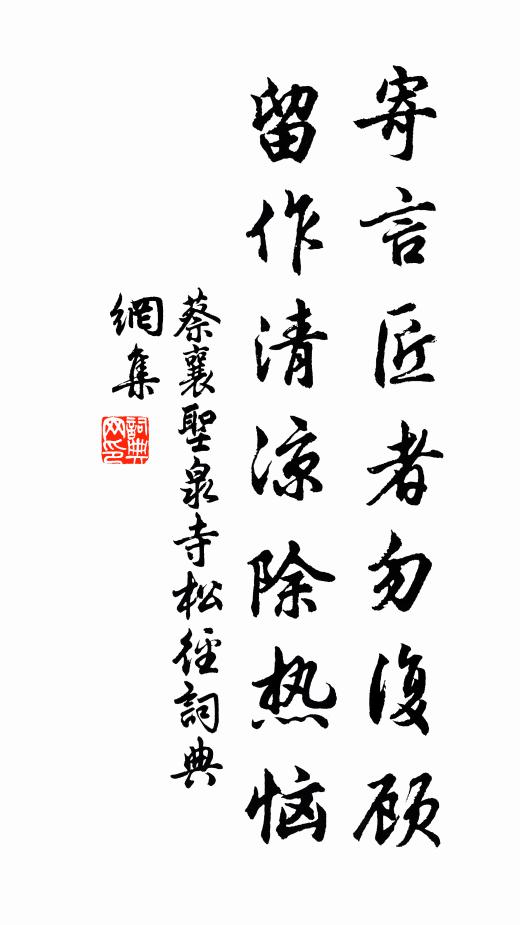 寄言匠者勿復顾
留作清凉除热恼
蔡襄聖泉寺松徑詞典
網集
詞典
网印